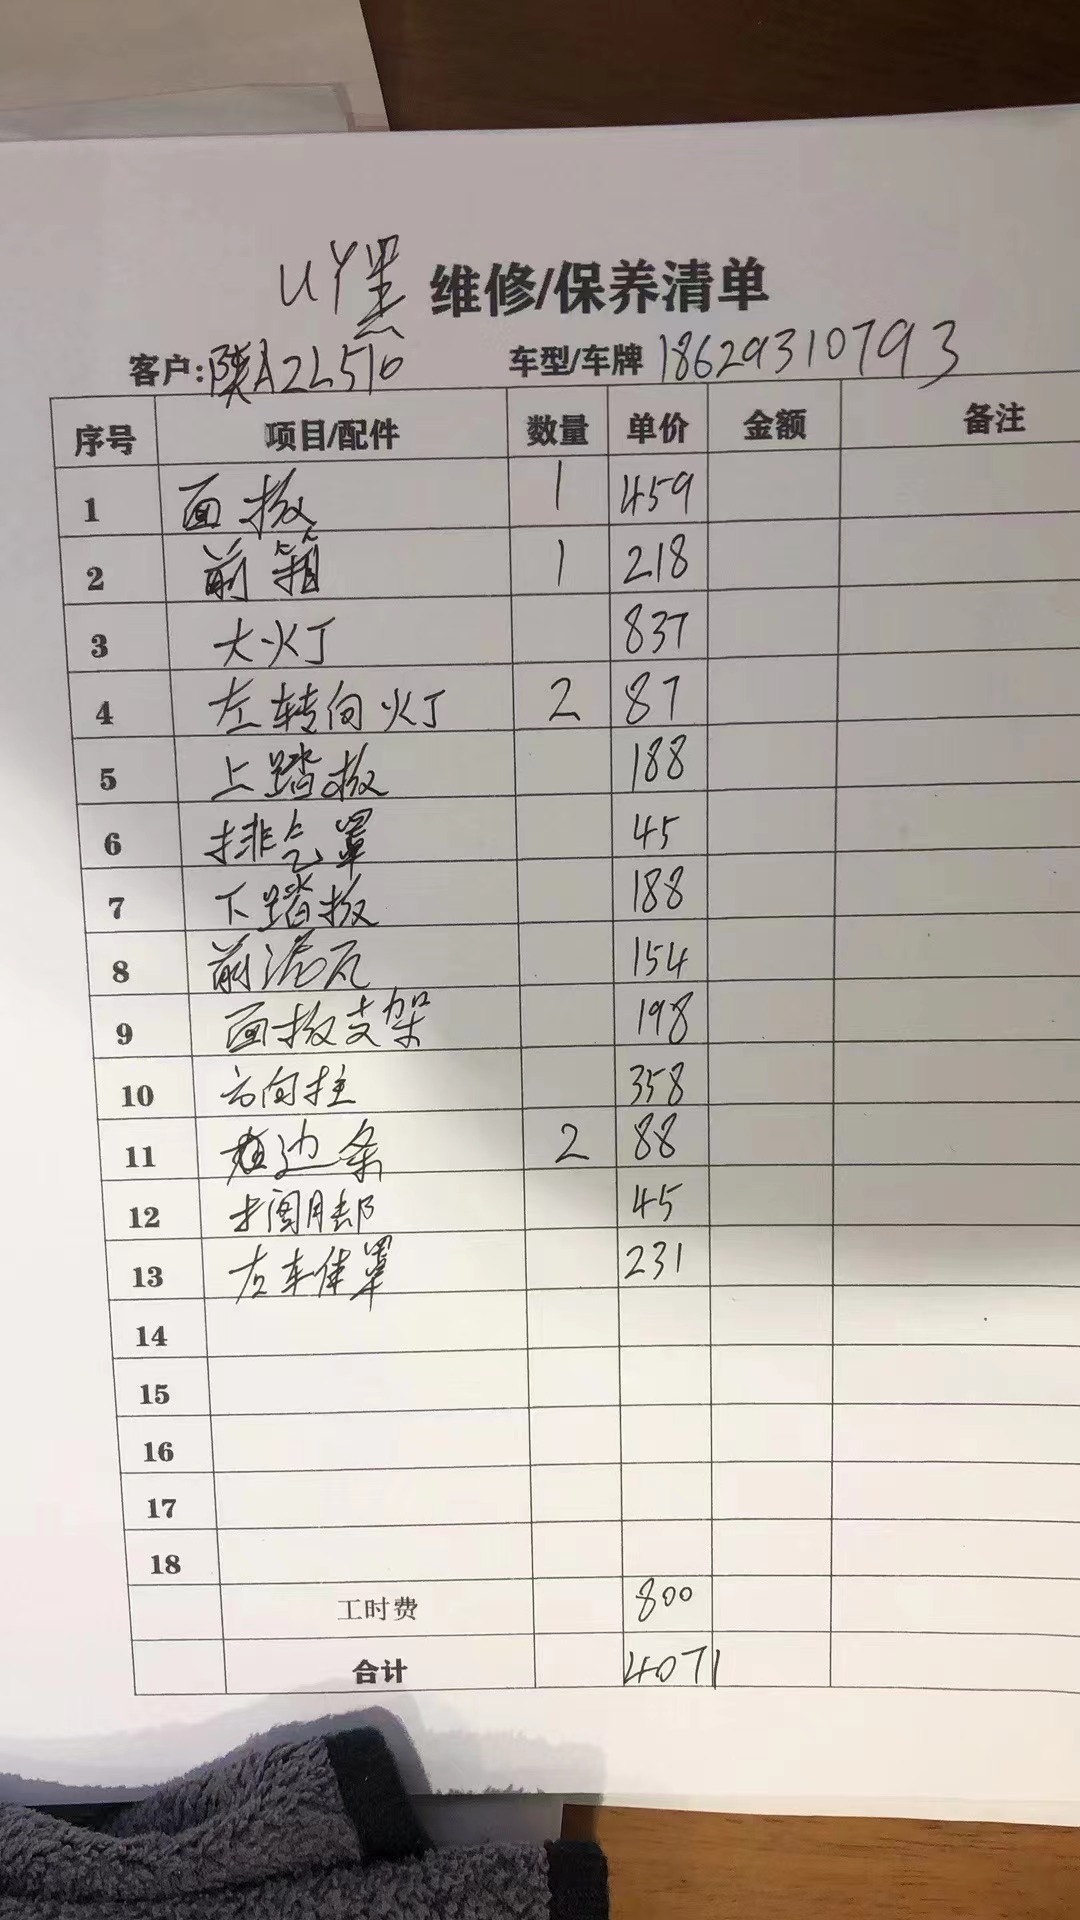 UY黑 维修/保养清单
客户:陕A2L510 车型/车牌 18629310793
序号 项目/配件 数量 单价 金额 备注
1 面板 1 459
2 前箱 1 218
3 大火丁 837
4 左转向火丁 2 87
5 上踏板 188
6 排气罩 45
7 下踏板 188
8 前泥瓦 154
9 面板支架 198
10 方向柱 358
11 边条 2 88
12 45
13 右车体罩 231
14
15
16
17
18
工时费 800
合计 4071